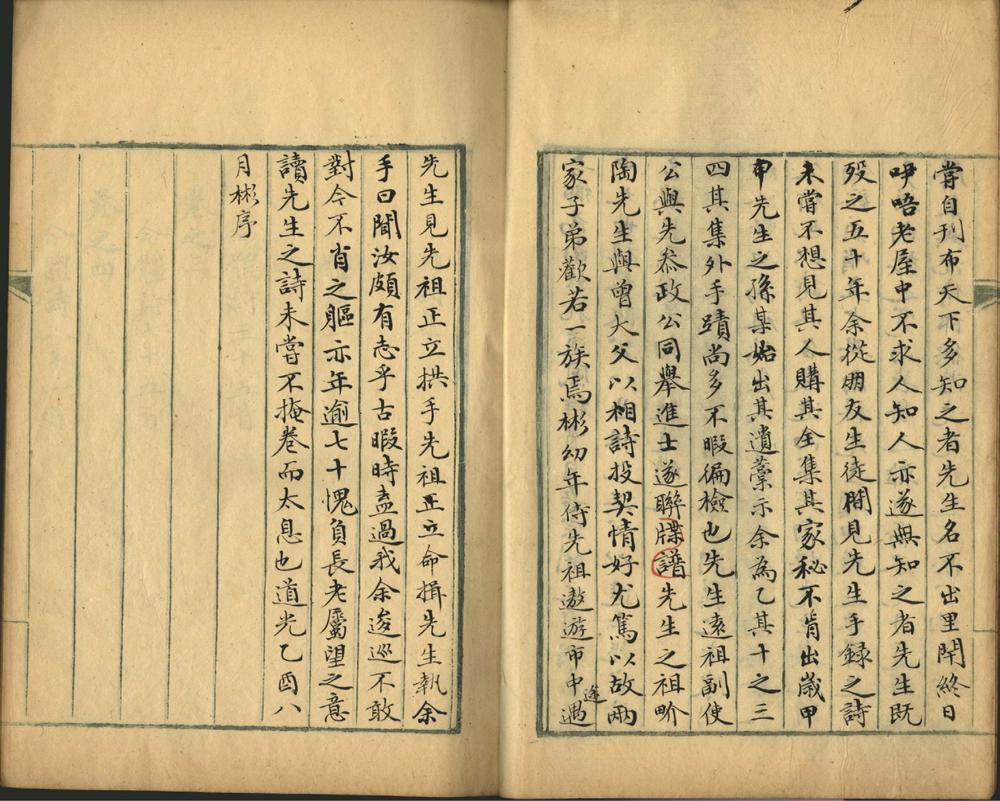 嘗自刊布天下多知之者先生名不出里閈終日
咿唔老屋中不求人知人亦遂無知之者先生既
歿之五十年余從朋友生徒間見先生手録之詩
未嘗不想見其人購其全集其家秘不肯出歲甲
申先生之孫某始出其遺藁示余為乙其十之三
四其集外手蹟尚多不暇徧檢也先生遠祖副使
公與先叅政公同舉進士遂聯牒譜先生之祖畍
陶先生與曾大父以相詩投契情好尤篤以故兩
家子弟歡若一族焉彬幼年侍先祖遨遊市中遇
途
先生見先祖正立拱手先祖正立命揖先生執余
手曰聞汝頗有志乎古暇時盍過我余逡巡不敢
對今不肖之軀亦年逾七十愧負長老屬望之意
讀先生之詩未嘗不掩卷而太息也道光乙酉八
月彬序